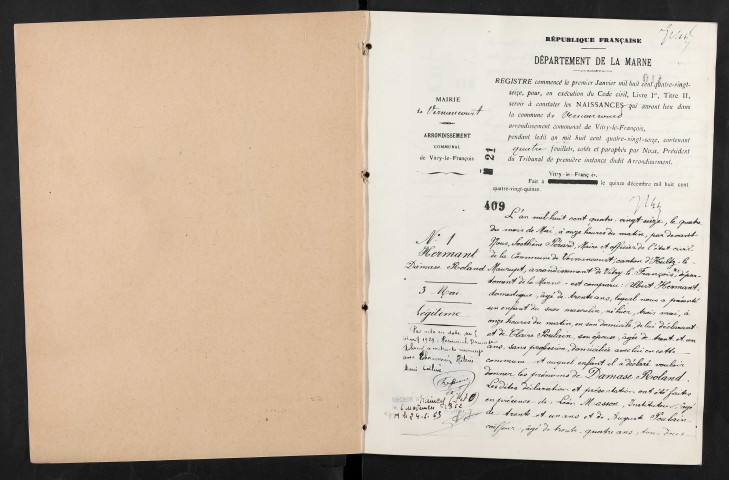 RÉPUBLIQUE FRANÇAISE
DÉPARTEMENT DE LA MARNE
REGISTRE commencé le premier Janvier mil huit cent quatre-vingt-
seize, pour, en exécution du Code civil, Livre 1er, Titre II,
servir à constater les NAISSANCES qui auront lieu dans
la commune de Vernancourt
arrondissement communal de Vitry-le-François,
pendant ledit an mil huit cent quatre-vingt-seize, contenant
quatre feuillets, cotés et paraphés par Nous, Président
du Tribunal de première instance dudit Arrondissement.
Vitry-le-François,
Fait à le quinze décembre mil huit cent
quatre-vingt-quinze.
MAIRIE
de Vernancourt
ARRONDISSEMENT
COMMUNAL
de Vitry-le-François
21
409
N° 1
Hermant
Damase Roland
3 Mai
Légitime
L'an mil huit cent quatre-vingt-seize, le quatre
du mois de Mai, à onze heures du matin, par devant
Nous, Sosthène Pérard, Maire et officier de l'état civil
de la Commune de Vernancourt, canton d'Heiltz-le-
Maurupt, arrondissement de Vitry-le-François, dépar-
tement de la Marne, est comparu: Albert Hermant,
domestique, âgé de trente ans, lequel nous a présenté
un enfant du sexe masculin, né hier, trois mai, à
onze heures du matin, en son domicile, de lui déclarant
et de Claire Poulain, son épouse, âgée de trente et un
ans, sans profession, domiciliée avec lui en cette
commune et auquel enfant il a déclaré vouloir
donner les prénoms de Damase Roland.
Lesdites déclaration et présentation ont été faites
en présence de Léon Masson, Instituteur, âgé
de trente et un ans et de August Poulain
coiffeur, âgé de trente-quatre ans, tous deux